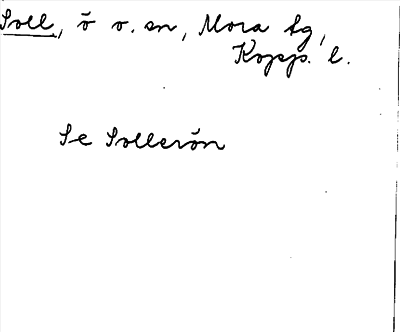 Soll, ö o. sn, Mora sg,
Kopp. l.
Se Sollerön